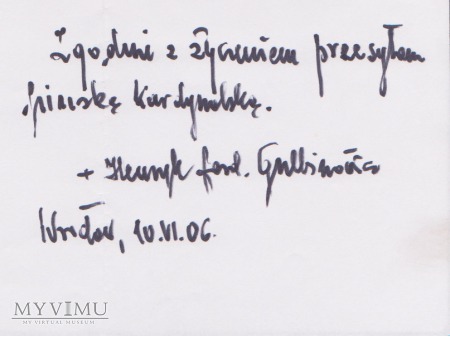 Zgodnie z życzeniem przesyłam
piuskę Kardynalską.
+ Henryk Kard. Gulbinowicz
Wrocław, 10.VI.06.
MYVIMU
MY VIRTUAL MUSEUM